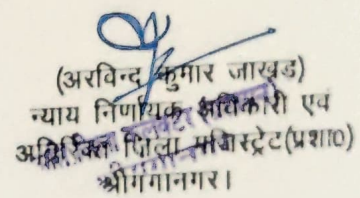 (अरविन्द कुमार जाखड)
न्याय निर्णायक अधिकारी एवं
अतिरिक्त जिला मजिस्ट्रेट(प्रशा०)
श्रीगंगानगर।